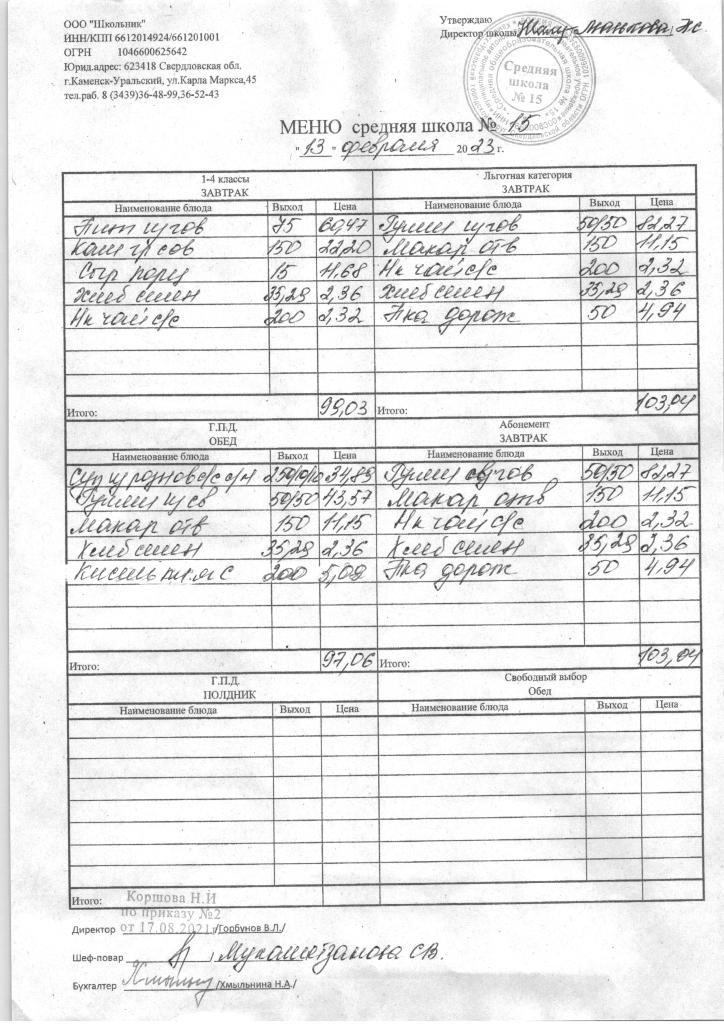 ООО "Школьник"
ИНН/КПП 6612014924/661201001
ОГРН 1046600625642
Юрид.адрес: 623418 Свердловская обл.
г.Каменск-Уральский, ул.Карла Маркса,45
тел.раб. 8 (3439)36-48-99,36-52-43
Утверждаю
Директор школы
Средняя
школа
№ 15
МЕНЮ средняя школа № 15
"13" февраля 2023 г.
1-4 классы
ЗАВТРАК
Льготная категория
ЗАВТРАК
Наименование блюда Выход Цена Наименование блюда Выход Цена
75 60,47 50/50 82,27
150 22,20 Макар отв 150 11,15
Сыр порц 15 11,68 Нк чай с/с 200 2,32
Хлеб 35,29 2,36 Хлеб 35,29 2,36
Нк чай с/с 200 2,32 дорож 50 4,94
Итого: 99,03 Итого: 103,04
Г.П.Д.
ОБЕД
Абонемент
ЗАВТРАК
Наименование блюда Выход Цена Наименование блюда Выход Цена
Суп 34,89 50/50 82,27
50/50 43,57 Макар отв 150 11,15
Макар отв 150 11,15 Нк чай с/с 200 2,32
Хлеб 35,29 2,36 Хлеб 35,29 2,36
Кисель 200 5,09 дорож 50 4,94
Итого: 97,06 Итого: 103,04
Г.П.Д.
ПОЛДНИК
Свободный выбор
Обед
Наименование блюда Выход Цена Наименование блюда Выход Цена
Итого:
Коршова Н.И
по приказу №2
от 17.08.2021г
Директор /Горбунов В.Л./
Шеф-повар
Бухгалтер /Хмыльнина Н.А./